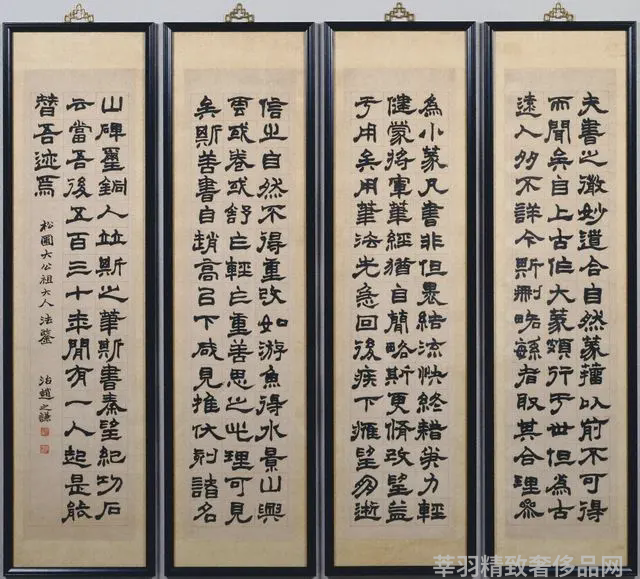 夫書之微妙道合自然篆籀以前不可得
而聞矣自上古作大篆頗行于世但為古
遠人多不詳今斯刪略繇者取其合理參
為小篆凡書非但裹結流快終藉筆力輕
健蒙將軍筆經猶自簡略斯更脩改望益
于用矣用筆法先急回後疾下望逝
信之自然不得重改如游魚得水景山興
雲或卷或舒乍輕乍重善思之此理可見
矣斯善書自趙高已下咸見推伏刻諸名
山碑璽銅人竝斯之筆斯書秦望紀功石
云當吾後五百三十年間有一人起是能
替吾迹焉
松圃大公祖大人法鑒
治趙之謙
莘羽精致奢侈品网